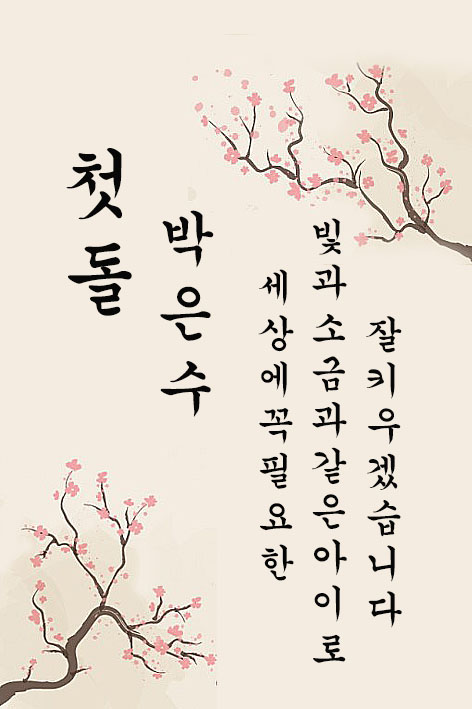 첫돌
박은수
세상에꼭필요한
빛과소금과같은아이로
잘키우겠습니다